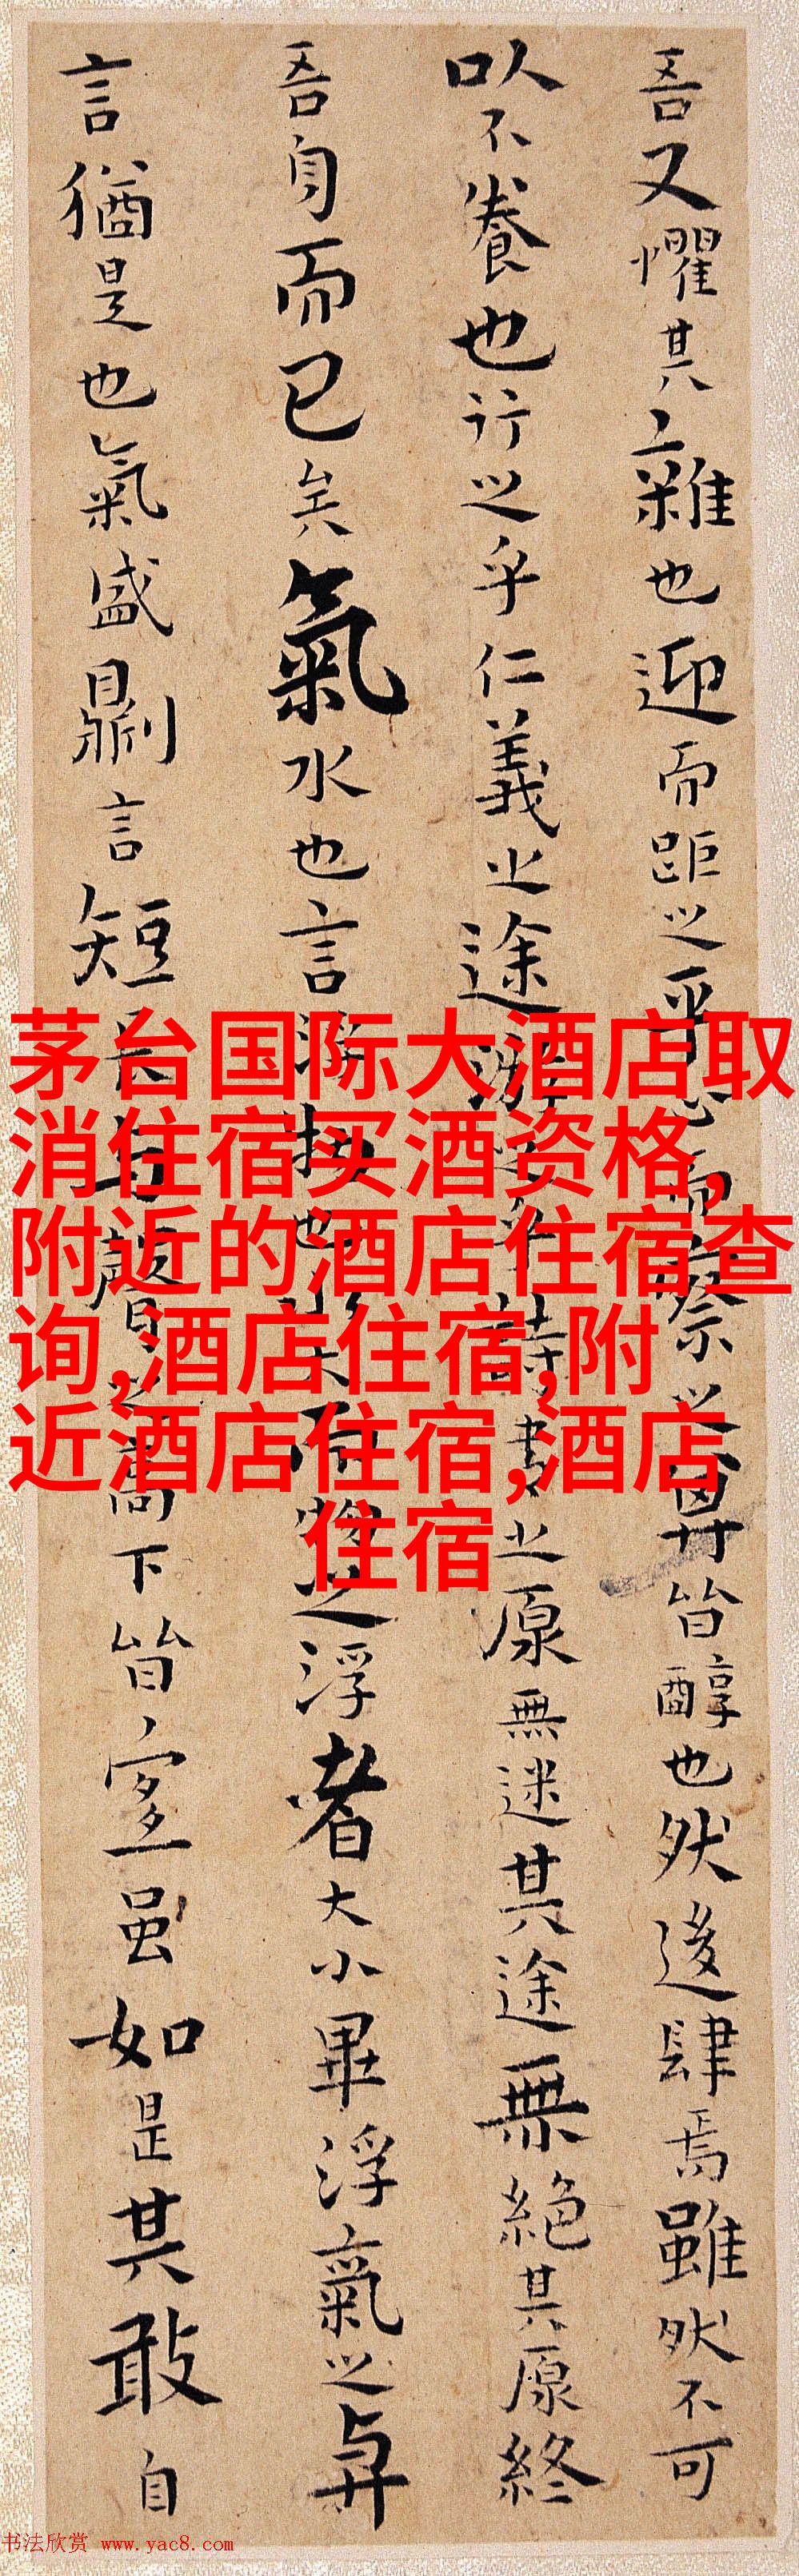 吾又懼其雜也迎而距之平心而察之其皆醇也然後肆焉雖然不可
以不養也行之乎仁義之途游之乎詩書之原無迷其途無絕其原終
吾身而已矣氣水也言浮物也水大而物之浮者大小畢浮氣之與
言猶是也氣盛則言短長與聲之高下皆宜虽如是其敢自
茅台国际大酒店取
消住宿买酒资格,
附近的酒店住宿查
询,酒店住宿,附
近酒店住宿,酒店
住宿
书法欣赏 www.yac8.com